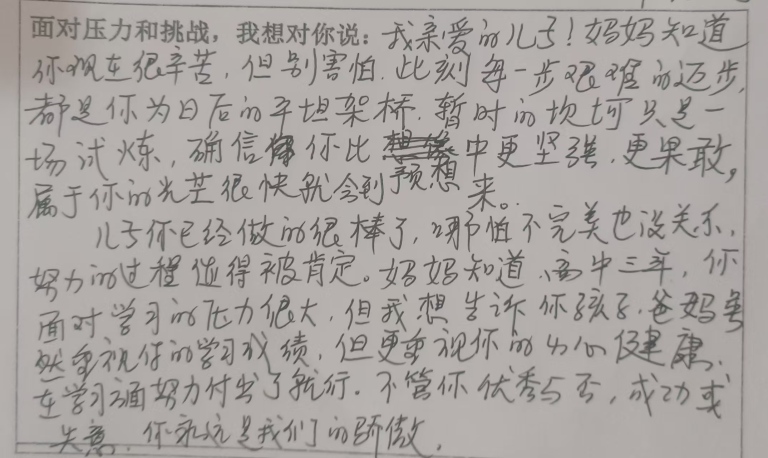 面对压力和挑战，我想对你说：我亲爱的儿子！妈妈知道
你现在很辛苦，但别害怕，此刻每一步艰难的迈步，
都是你为日后的平坦架桥，暂时的坎坷只是一
场试炼，确信你比预想中更坚强，更果敢，
属于你的光芒很快就会到来。
儿子你已经做的很棒了，哪怕不完美也没关系，
努力的过程值得被肯定。妈妈知道，高中三年，你
面对学习的压力很大，但我想告诉你孩子，爸妈虽
然重视你的学习成绩，但更重视你的身心健康，
在学习上面努力付出了就行。不管你优秀与否，成功或
失意，你永远是我们的骄傲。